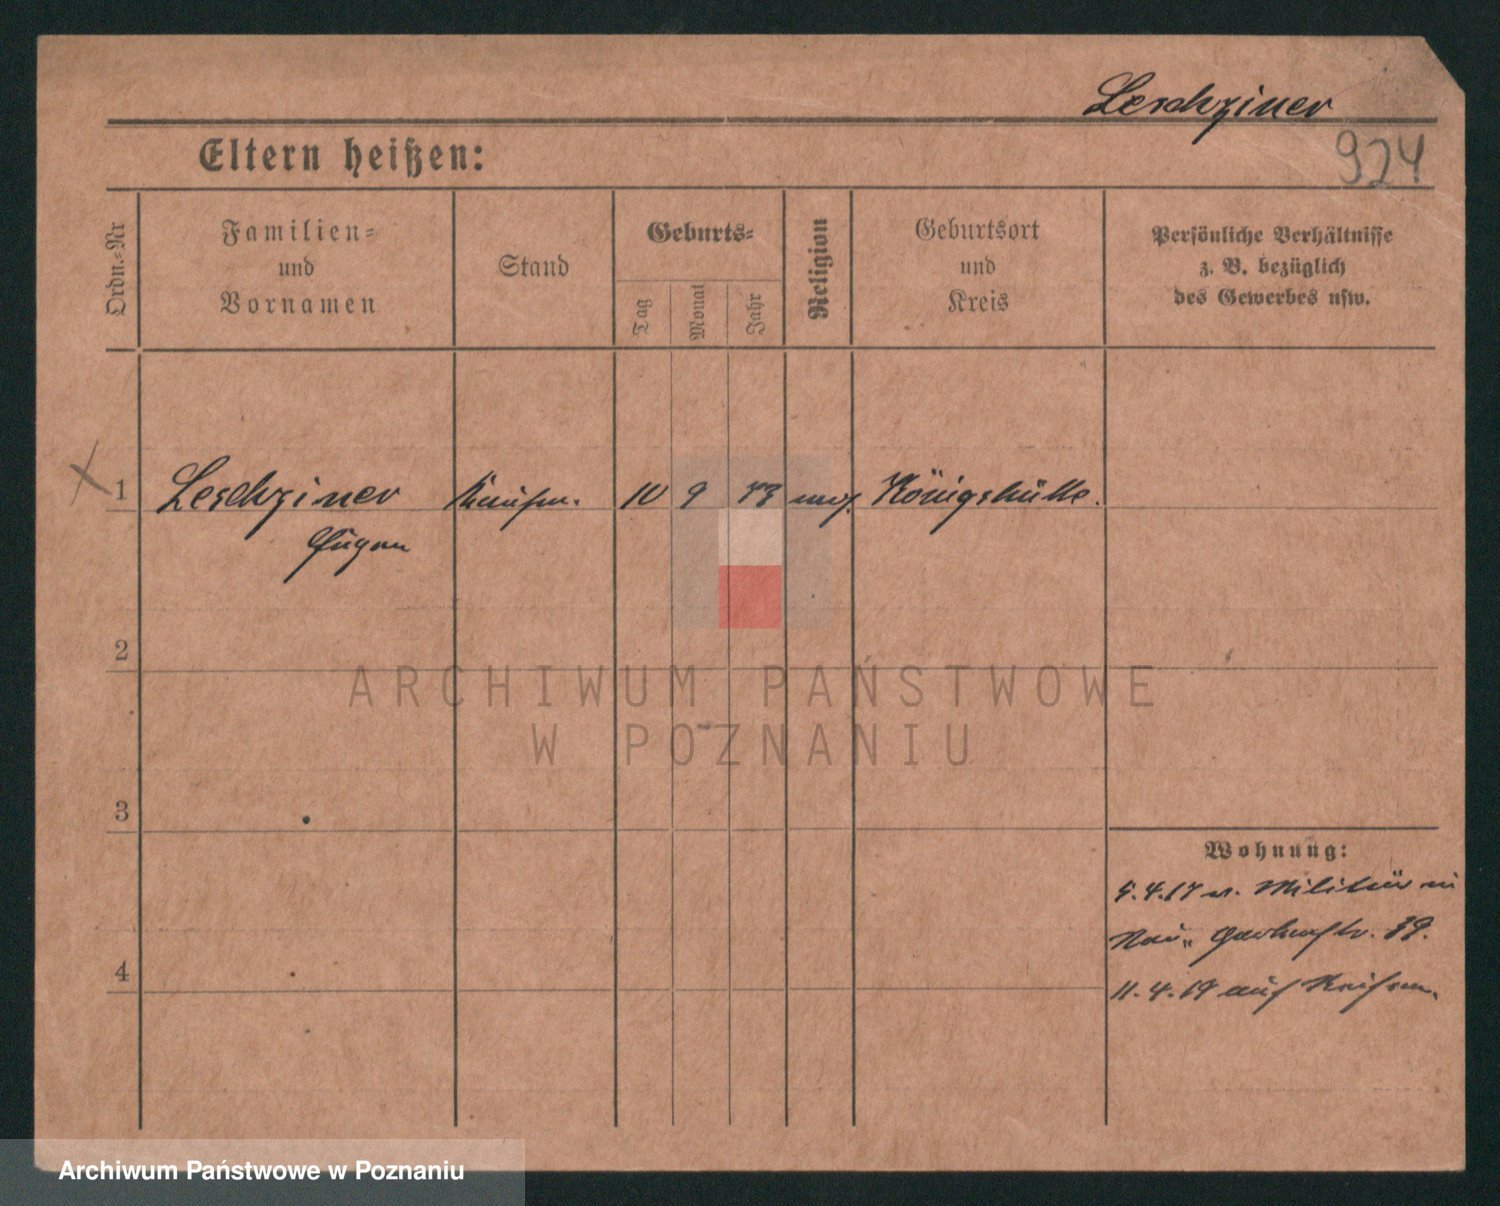 Leschziner
924
Eltern heißen:
Ordn.-Nr
Familien-
und
Vornamen
Stand
Geburts-
Tag
Monat
Jahr
Religion
Geburtsort
und
Kreis
Persönliche Verhältnisse
z. B. bezüglich
des Gewerbes usw.
1 Leschziner Kaufm. 10 9 73 Königshütte.
Eugen
2
3
4
Wohnung:
5.4.17 v. Militär
39.
11.4.19 auf Reisen.
ARCHIWUM PAŃSTWOWE
W POZNANIU
Archiwum Państwowe w Poznaniu